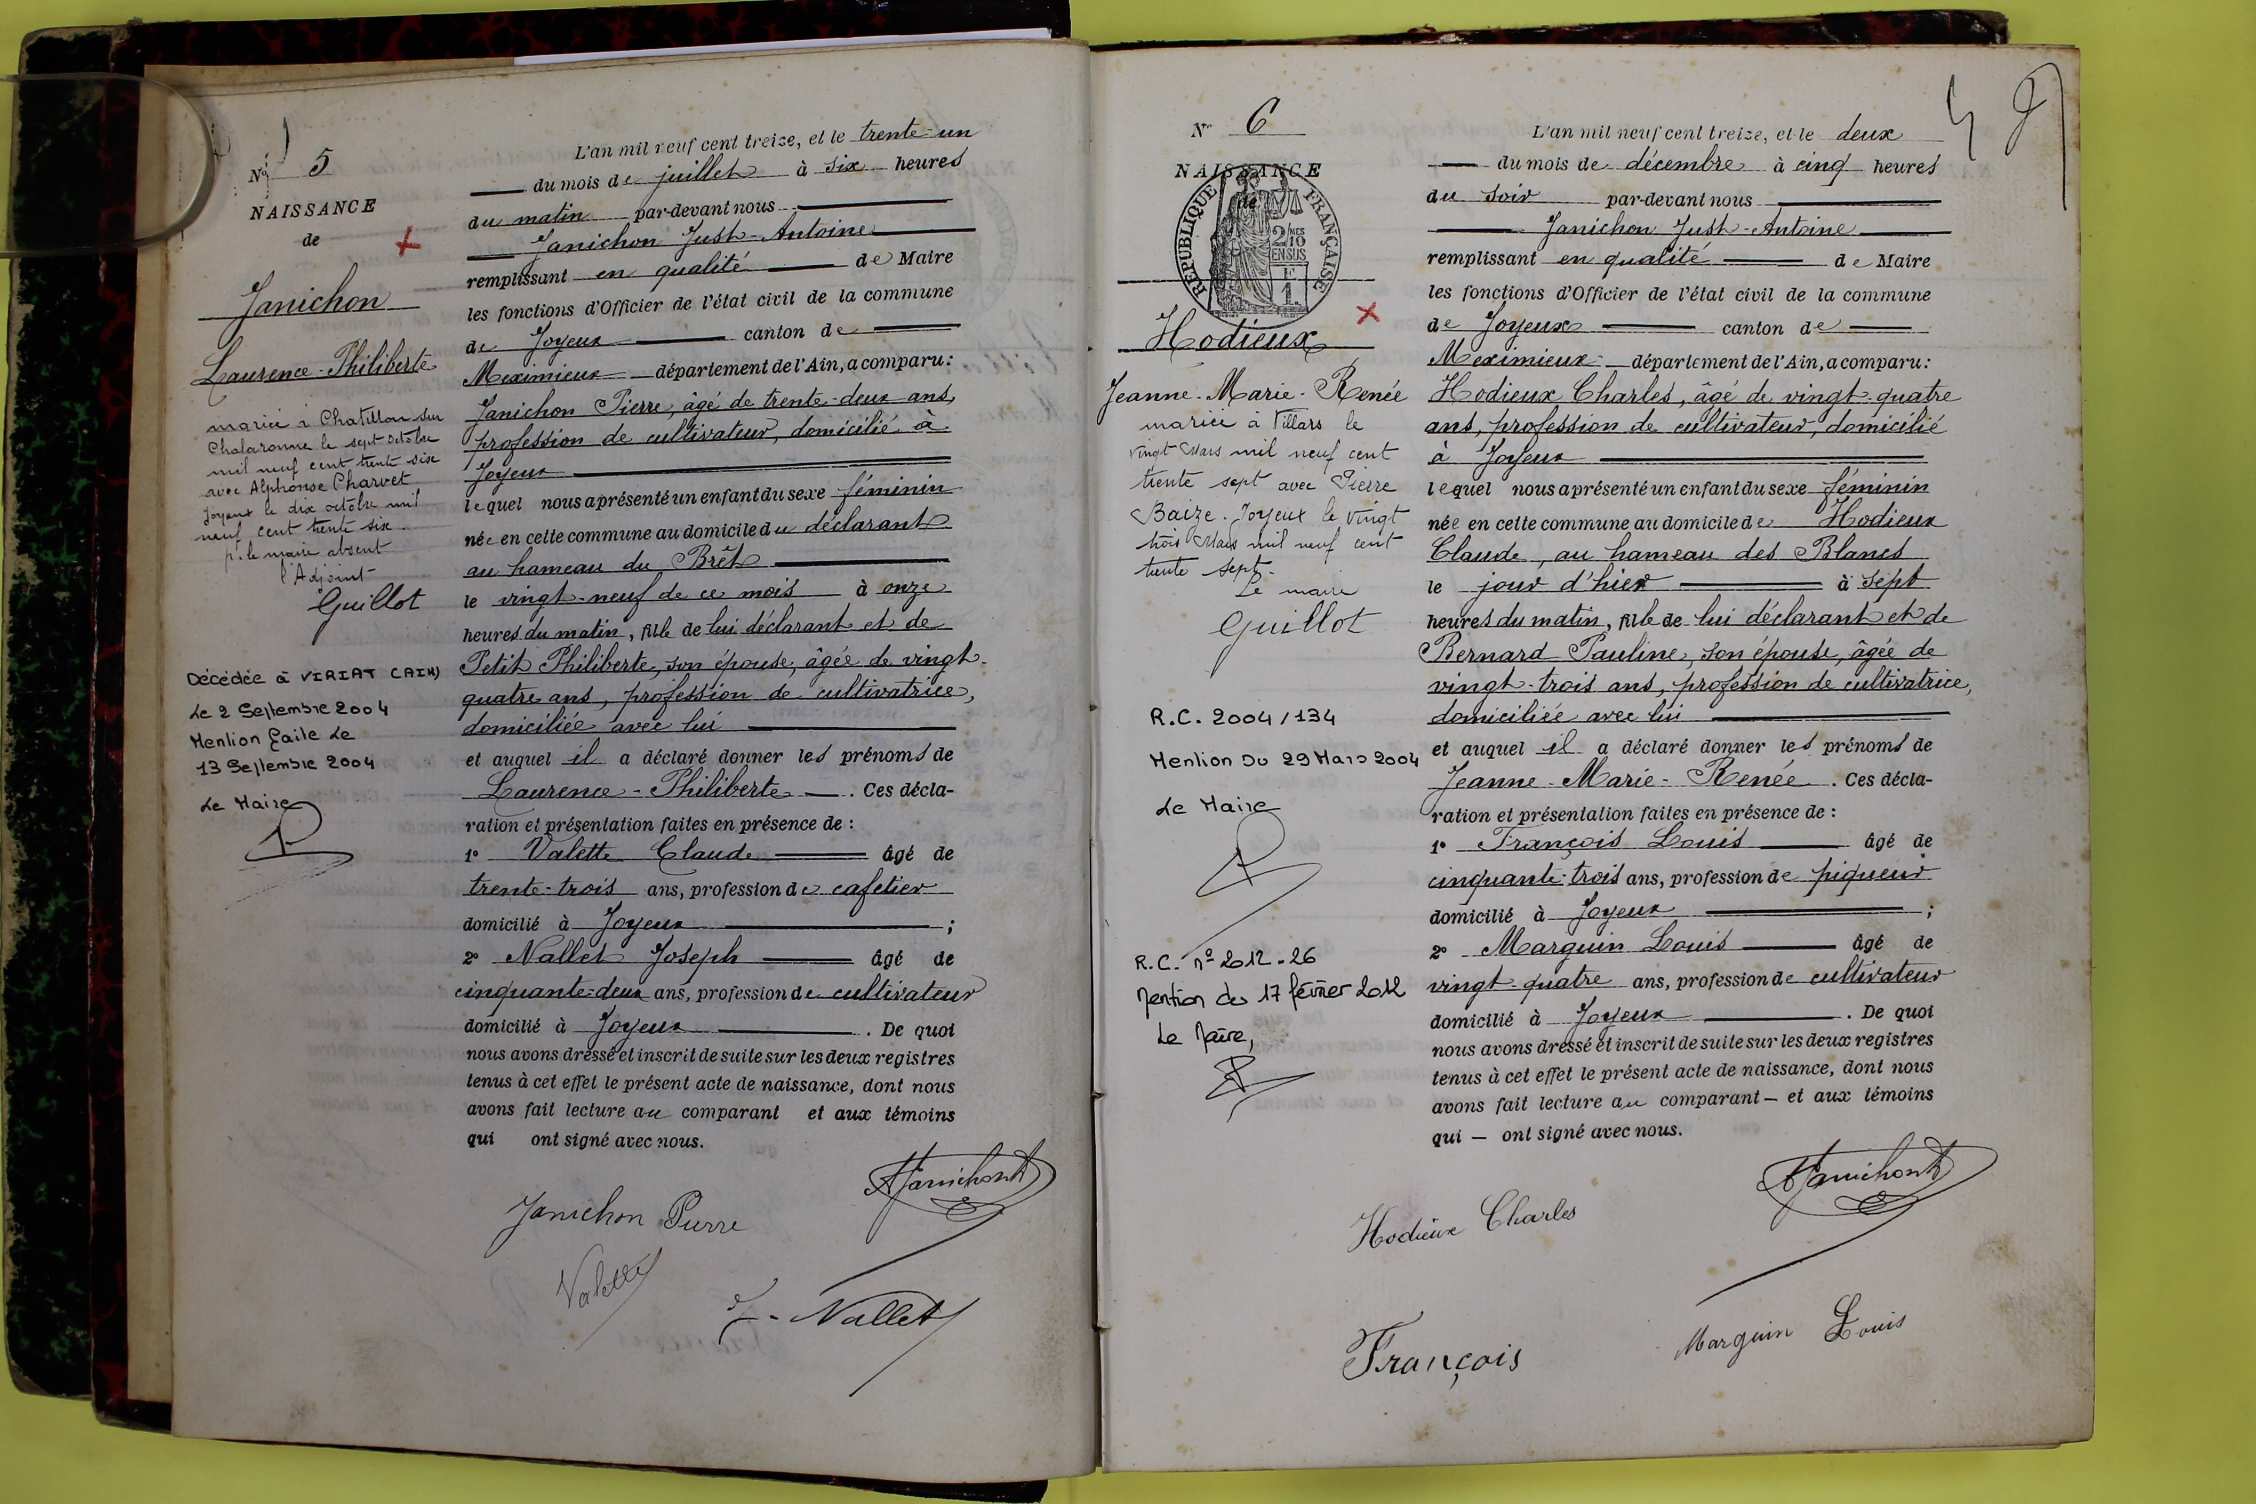 No 5
NAISSANCE
de
Janichon
Laurence-Philiberte
mariée à Chatillon sur
Chalaronne le sept octobre
mil neuf cent trente six
avec Alphonse Charvet
Joyeux le dix octobre mil
neuf cent trente six.
pr. le maire absent
l'Adjoint
Guillot
Décédée à VIRIAT (AIN)
Le 2 Septembre 2004
Mention faite le
13 Septembre 2004
Le Maire
L'an mil neuf cent treize, et le trente-un
du mois de juillet à six heures
du matin par-devant nous
Janichon Just-Antoine
remplissant en qualité de Maire
les fonctions d'Officier de l'état civil de la commune
de Joyeux canton de
Meximieux département de l'Ain, a comparu:
Janichon Pierre, âgé de trente-deux ans,
profession de cultivateur, domicilié à
Joyeux
lequel nous a présenté un enfant du sexe féminin
née en cette commune au domicile du déclarant
au hameau du Brêt
le vingt-neuf de ce mois à onze
heures du matin, fille de lui déclarant et de
Petit Philiberte, son épouse, âgée de vingt-
quatre ans, profession de cultivatrice,
domiciliée avec lui
et auquel il a déclaré donner les prénoms de
Laurence-Philiberte. Ces décla-
ration et présentation faites en présence de :
1° Valette Claude âgé de
trente-trois ans, profession de cafetier
domicilié à Joyeux ;
2° Nallet Joseph âgé de
cinquante-deux ans, profession de cultivateur
domicilié à Joyeux . De quoi
nous avons dressé et inscrit de suite sur les deux registres
tenus à cet effet le présent acte de naissance, dont nous
avons fait lecture au comparant et aux témoins
qui ont signé avec nous.
AJanichon
Janichon Pierre
Valette
J. Nallet
No 6
NAISSANCE
de
REPUBLIQUE FRANÇAISE
2 MES
10
EN SUS
F
1.
Hodieux
Jeanne-Marie-Renée
mariée à Villars le
vingt Mars mil neuf cent
trente sept avec Pierre
Baize. Joyeux le vingt
trois Mars mil neuf cent
trente sept.
Le maire
Guillot
R.C. 2004/134
Mention Du 29 Mars 2004
Le Maire
R.C. n° 2012-26
Mention du 17 février 2012
Le Maire,
L'an mil neuf cent treize, et le deux
du mois de décembre à cinq heures
du soir par-devant nous
Janichon Just-Antoine
remplissant en qualité de Maire
les fonctions d'Officier de l'état civil de la commune
de Joyeux canton de
Meximieux département de l'Ain, a comparu:
Hodieux Charles, âgé de vingt-quatre
ans, profession de cultivateur, domicilié
à Joyeux
lequel nous a présenté un enfant du sexe féminin
née en cette commune au domicile de Hodieux
Claude, au hameau des Blancs
le jour d'hier à sept
heures du matin, fille de lui déclarant et de
Bernard Pauline, son épouse, âgée de
vingt-trois ans, profession de cultivatrice,
domiciliée avec lui
et auquel il a déclaré donner les prénoms de
Jeanne-Marie-Renée. Ces décla-
ration et présentation faites en présence de :
1° François Louis âgé de
cinquante-trois ans, profession de piqueur
domicilié à Joyeux ;
2° Marguin Louis âgé de
vingt-quatre ans, profession de cultivateur
domicilié à Joyeux . De quoi
nous avons dressé et inscrit de suite sur les deux registres
tenus à cet effet le présent acte de naissance, dont nous
avons fait lecture au comparant — et aux témoins
qui — ont signé avec nous.
AJanichon
Hodieux Charles
François
Marguin Louis